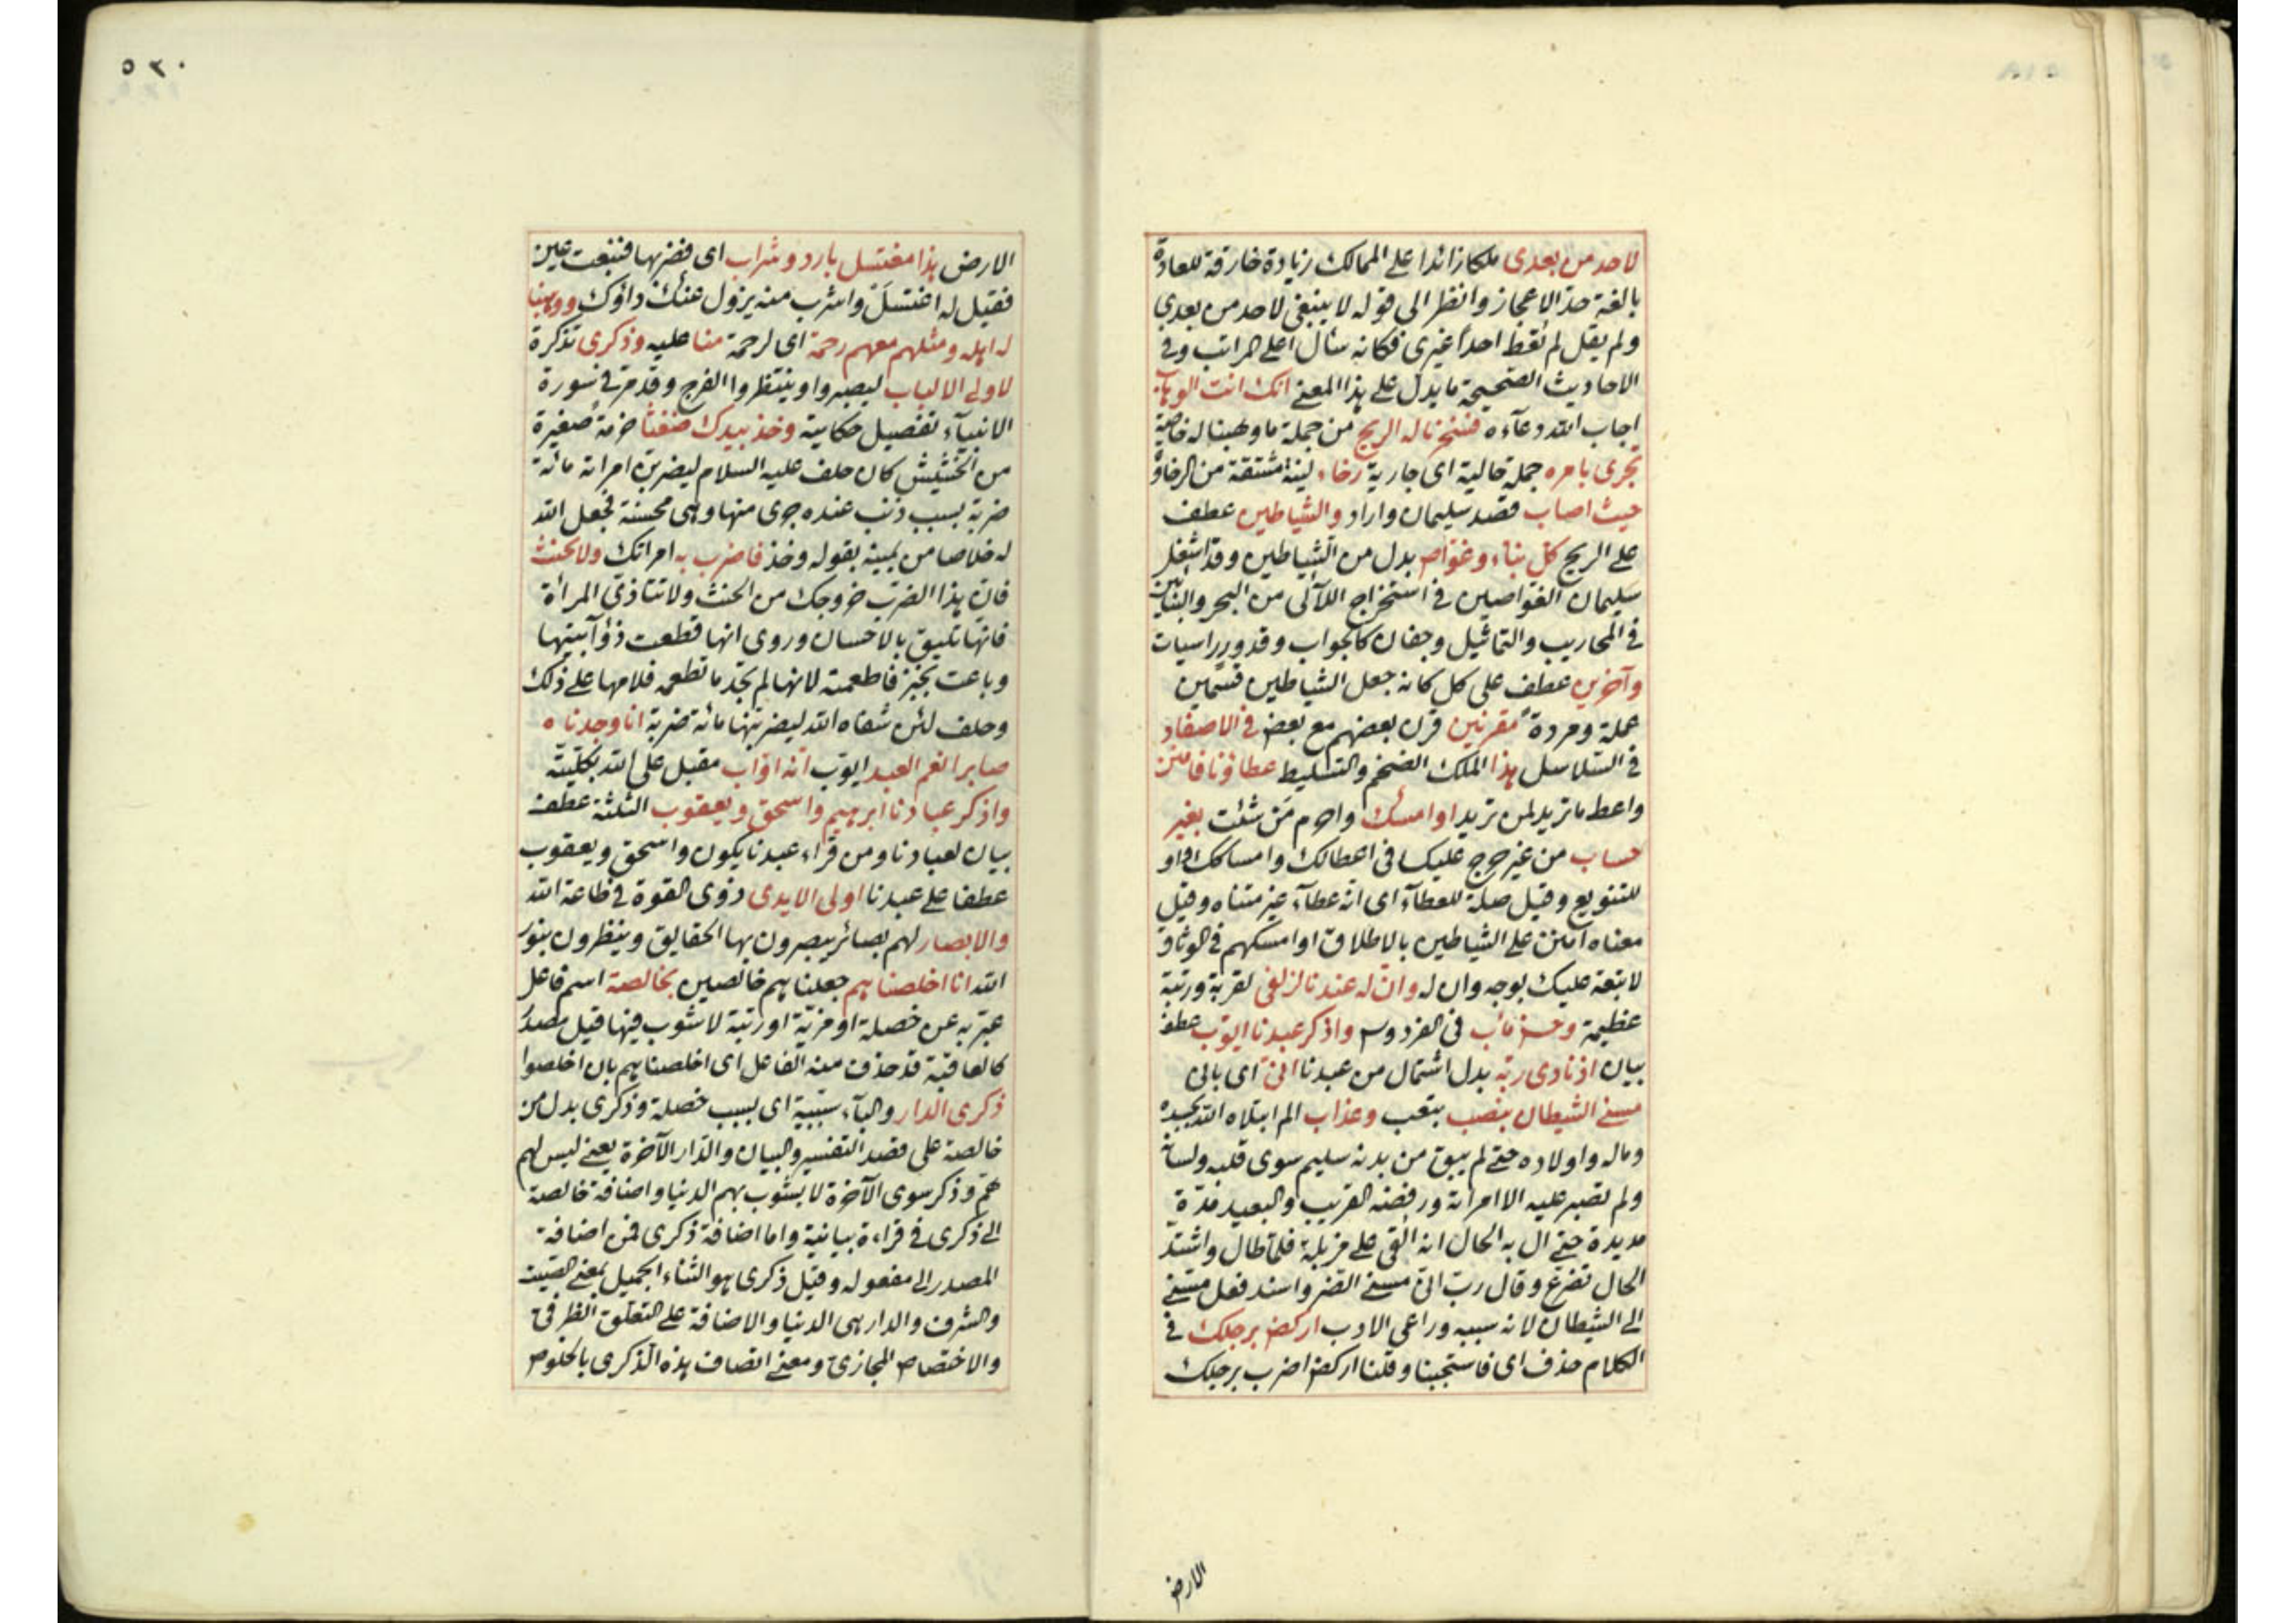 لاحد من بعدى ملكا زائدا على الممالك زيادة خارقة للعادة
بالغة حد الاعجاز وانظر الى قوله لا ينبغى لاحد من بعدى
ولم يقل لم تعط احدا غيرى فكانه سأل اعلى المراتب وفى
الاحاديث الصحيحة ما يدل على هذا المعنى انك انت الوهاب
اجاب الله دعآءه فسخرنا له الريح من جملة ما وهبنا له خاصة
تجرى بامره جملة حالية اى جارية رخاء لينة مشتقة من الرخاوة
حيث اصاب قصد سليمان واراد والشياطين عطف
على الريح كل بناء وغواص بدل من الشياطين وقد اشغل
سليمان الغواصين فى استخراج اللآلى من البحر والبنائين
فى المحاريب والتماثيل وجفان كالجواب وقدور راسيات
وآخرين عطف على كل كانه جعل الشياطين قسمين
عملة ومردة مقرنين قرن بعضهم مع بعض فى الاصفاد
فى السلاسل هذا الملك الضخم والتسليط عطاؤنا فامنن
واعط ما تريد لمن تريد او امسك واحرم من شئت بغير
حساب من غير حرج عليك فى اعطائك وامساكك او
للتنويع وقيل صلة للعطآء اى انه عطآء غير متناه وقيل
معناه امنن على الشياطين بالاطلاق او امسكهم فى الوثاق
لا تبعة عليك بوجه وان له وان له عندنا لزلفى لقربة ورتبة
عظيمة وحسن مآب فى الفردوس واذكر عبدنا ايوب عطف
بيان اذ نادى ربه بدل اشتمال من عبدنا انى اى بانى
مسنى الشيطان بنصب بتعب وعذاب الم ابتلاه الله بجسده
وماله واولاده حتى لم يبق من بدنه سليم سوى قلبه ولسانه
ولم تصبر عليه الا امرأته ورفضه القريب والبعيد مدة
مديدة حتى ال به الحال انه القى على مزبلة فلما طال واشتد
الحال تضرع وقال رب انى مسنى الضر واسند فعل مسنى
الى الشيطان لانه سببه وراعى الادب اركض برجلك فى
الكلام حذف اى فاستجبنا وقلنا اركض اضرب برجلك
الارض
٥٢٠
الارض هذا مغتسل بارد وشراب اى فضربها فنبعت عين
فقيل له اغتسل واشرب منه يزول عنك داؤك ووهبنا
له اهله ومثلهم معهم رحمة اى لرحمة منا عليه وذكرى تذكرة
لاولى الالباب ليصبروا وينتظروا الفرج وقد مر فى سورة
الانبيآء تفصيل حكايته وخذ بيدك ضغثا حزمة صغيرة
من الحشيش كان حلف عليه السلام ليضربن امرأته مائة
ضربة بسبب ذنب عنده جرى منها وهى محسنة فجعل الله
له خلاصا من يمينه بقوله وخذ فاضرب به امراتك ولا تحنث
فان هذا الضرب خروجك من الحنث ولا تتاذى المرأة
فانها تليق بالاحسان وروى انها قطعت ذؤآبتيها
وباعت بخبز فاطعمته لانها لم تجد ما تطعمه فلامها على ذلك
وحلف لئن شفاه الله ليضربنها مائة ضربة انا وجدناه
صابرا نعم العبد ايوب انه اواب مقبل على الله بكليته
واذكر عبادنا ابرهيم واسحق ويعقوب الثلثة عطف
بيان لعبادنا ومن قراء عبدنا يكون واسحق ويعقوب
عطفا على عبدنا اولى الايدى ذوى القوة فى طاعة الله
والابصار لهم بصائر يبصرون بها الحقايق وينظرون بنور
الله انا اخلصناهم جعلناهم خالصين بخالصة اسم فاعل
عبر به عن خصلة او مزية او رتبة لا شوب فيها قيل مصدر
كالعاقبة قد حذف منه الفاعل اى اخلصناهم بان اخلصوا
ذكرى الدار والبآء سببية اى بسبب خصلة وذكرى بدل من
خالصة على قصد التفسير والبيان والدار الآخرة يعنى ليس لهم
هم وذكر سوى الآخرة لا يشوب بهم الدنيا واضافة خالصة
الى ذكرى فى قراءة بيانية واما اضافة ذكرى فمن اضافة
المصدر الى مفعوله وقيل ذكرى هو الثناء الجميل بمعنى الصيت
والشرف والدار هى الدنيا والاضافة على التعلق الظرفى
والاختصاص المجازى ومعنى اتصاف هذه الذكرى بالخلوص